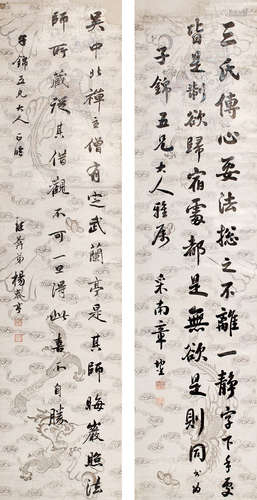 三氏傳心要法總之不離一靜字下手處
皆是制欲歸宿處都是無欲是則同書為
子錦五兄大人雅屬 采南章鋆
吳中北禪主僧有定武蘭亭是其師晦巖照法
師所藏從其借觀不可一旦得此喜不自勝
子錦五兄大人正
弟楊泰亨